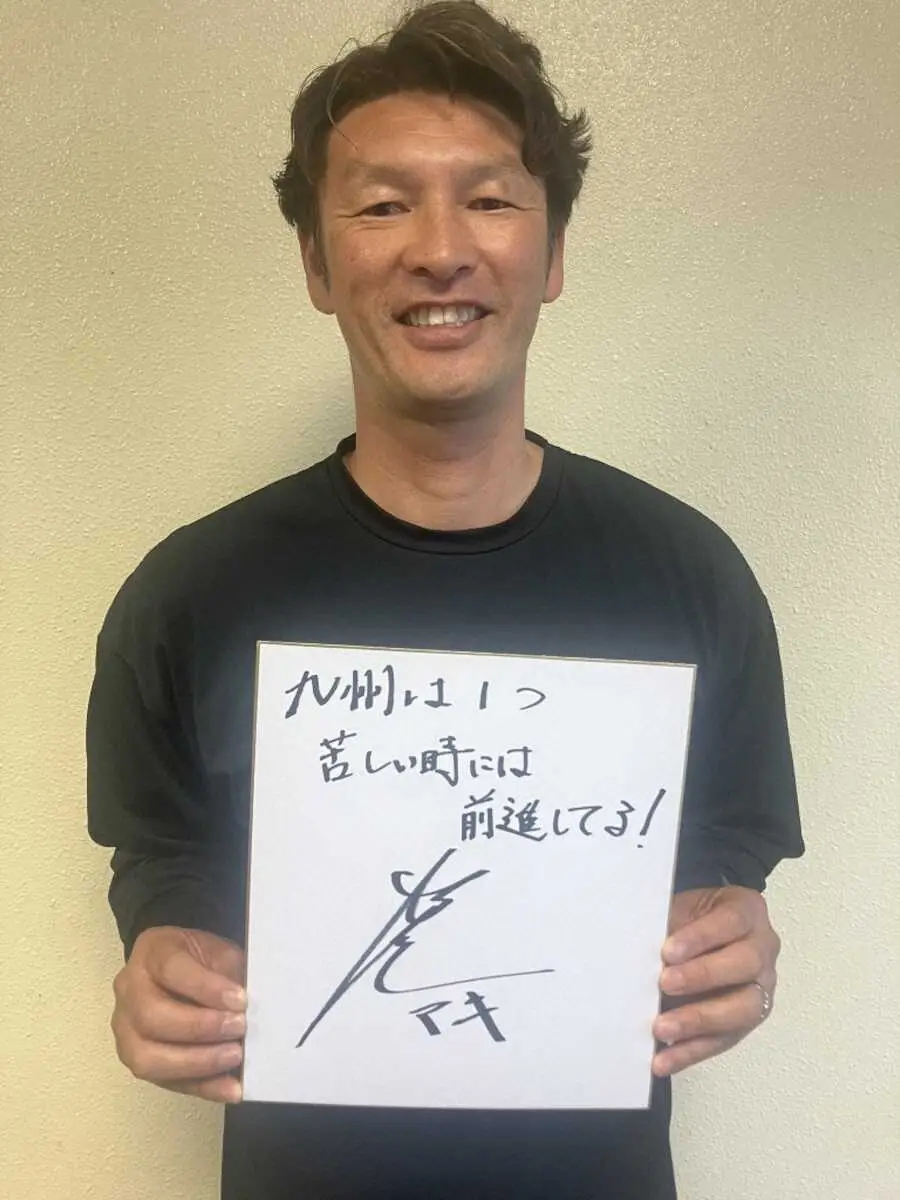 九州は1つ
苦しい時には
前進してる!
アキ